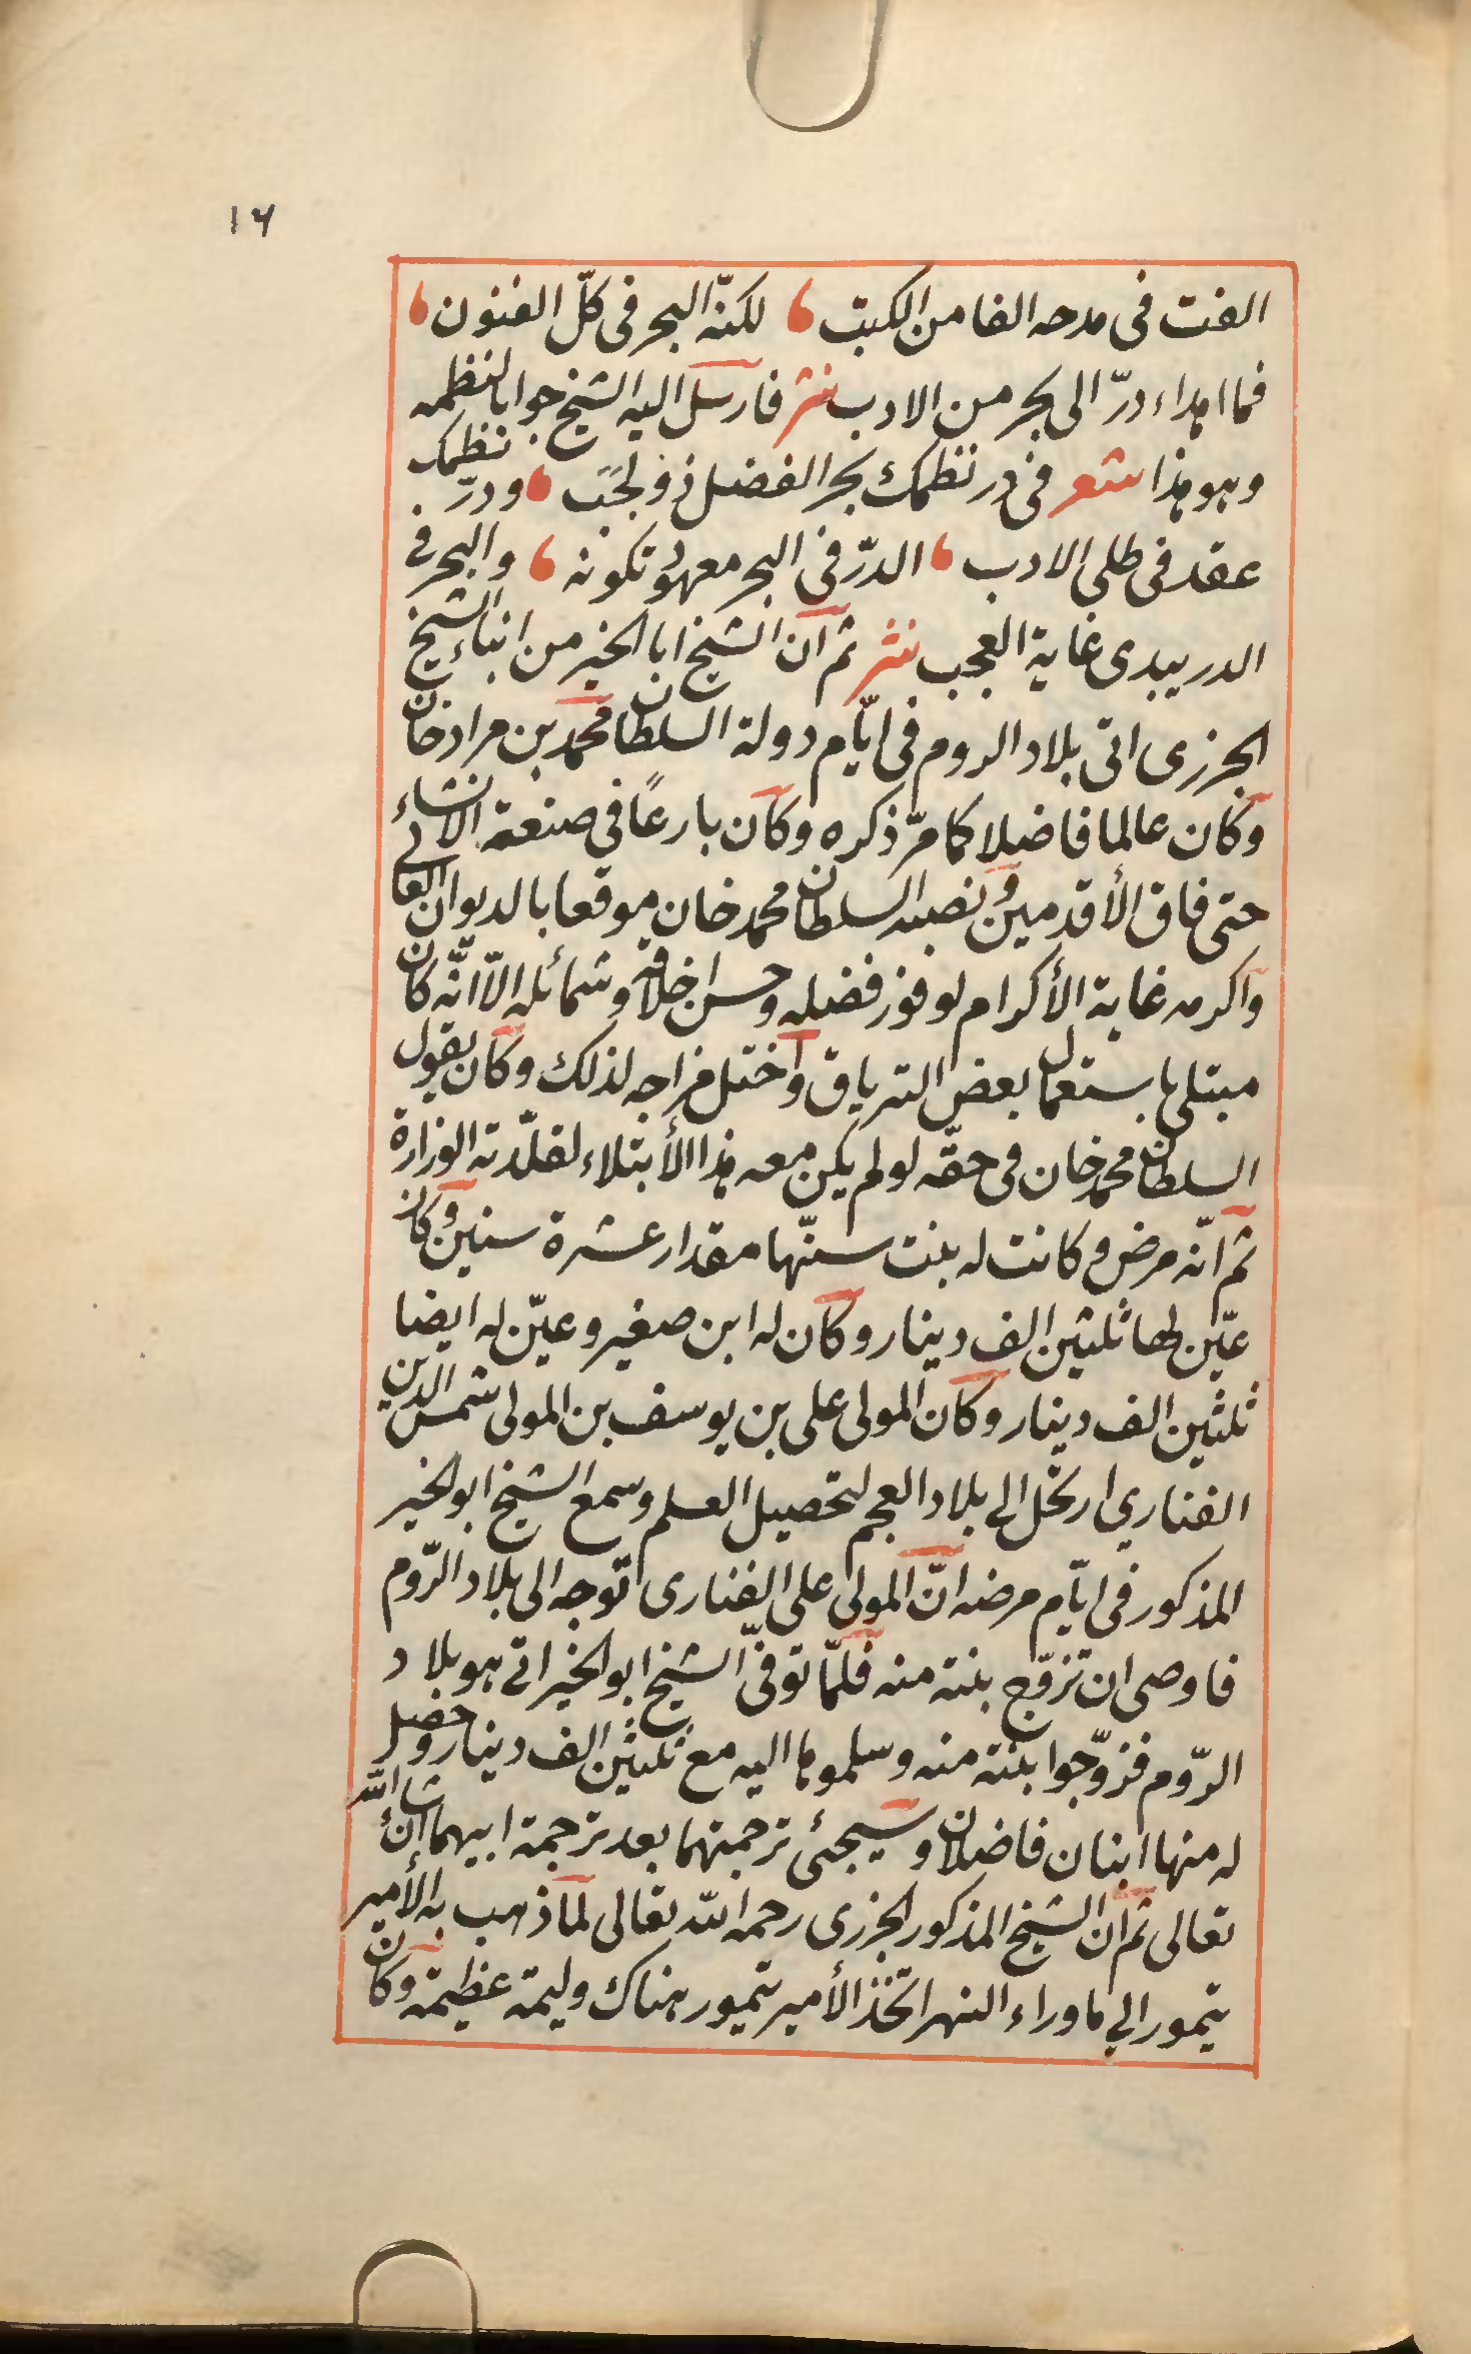 ١٦
الفت فى مدحه الفا من الكتب ، لكنّه البحر فى كلّ الفنون ،
فما اهداء درّ الى بحر من الادب نثر فارسل اليه الشيخ جوابا لنظمه
وهو هذا شعر فى در نظمك بحر الفضل ذو لجب ، ودرّ نظمك
عقد فى طلى الادب ، الدرّ فى البحر معهود تكونه ، والبحر فى
الدر يبدى غاية العجب نثر ثم ان الشيخ ابا الخير من ابناء الشيخ
الجزرى اتى بلاد الروم فى ايّام دولة السلطان محمد بن مراد خان
وكان عالما فاضلا كما مرّ ذكره وكان بارعًا فى صنعة الانشاء
حتى فاق الأقدمين ونصبه السلطان محمد خان موقعا بالديوان العالى
واكرمه غاية الأكرام لوفور فضله وحسن اخلاقه وشمائله الاّ انّه كان
مبتلى باستعمال بعض الترياق واختل مزاجه لذلك وكان يقول
السلطان محمد خان فى حقّه لو لم يكن معه هذا الأبتلاء لقلّدته الوزارة
ثم انّه مرض وكانت له بنت سنّها مقدار عشرة سنين وكان
عيّن لها ثلثين الف دينار وكان له ابن صغير وعيّن له ايضا
ثلثين الف دينار وكان المولى على بن يوسف بن المولى شمس الدين
الفناري ارتحل الى بلاد العجم لتحصيل العلم وسمع الشيخ ابو الخير
المذكور فى ايّام مرضه انّ المولى على الفنارى توجه الى بلاد الرّوم
فاوصى ان تزوّج بنته منه فلمّا توفىّ الشيخ ابو الخير اتى هو بلاد
الرّوم فزوّجوا بنته منه وسلموها اليه مع ثلثين الف دينار وحصل
له منها ابنان فاضلان وسيجئى ترجمتهما بعد ترجمة ابيهما ان شاء الله
تعالى ثم ان الشيخ المذكور الجزرى رحمه الله تعالى لما ذهب به الأمير
تيمور الى ما وراء النهر اتّخذ الأمير تيمور هناك وليمة عظيمة وكان